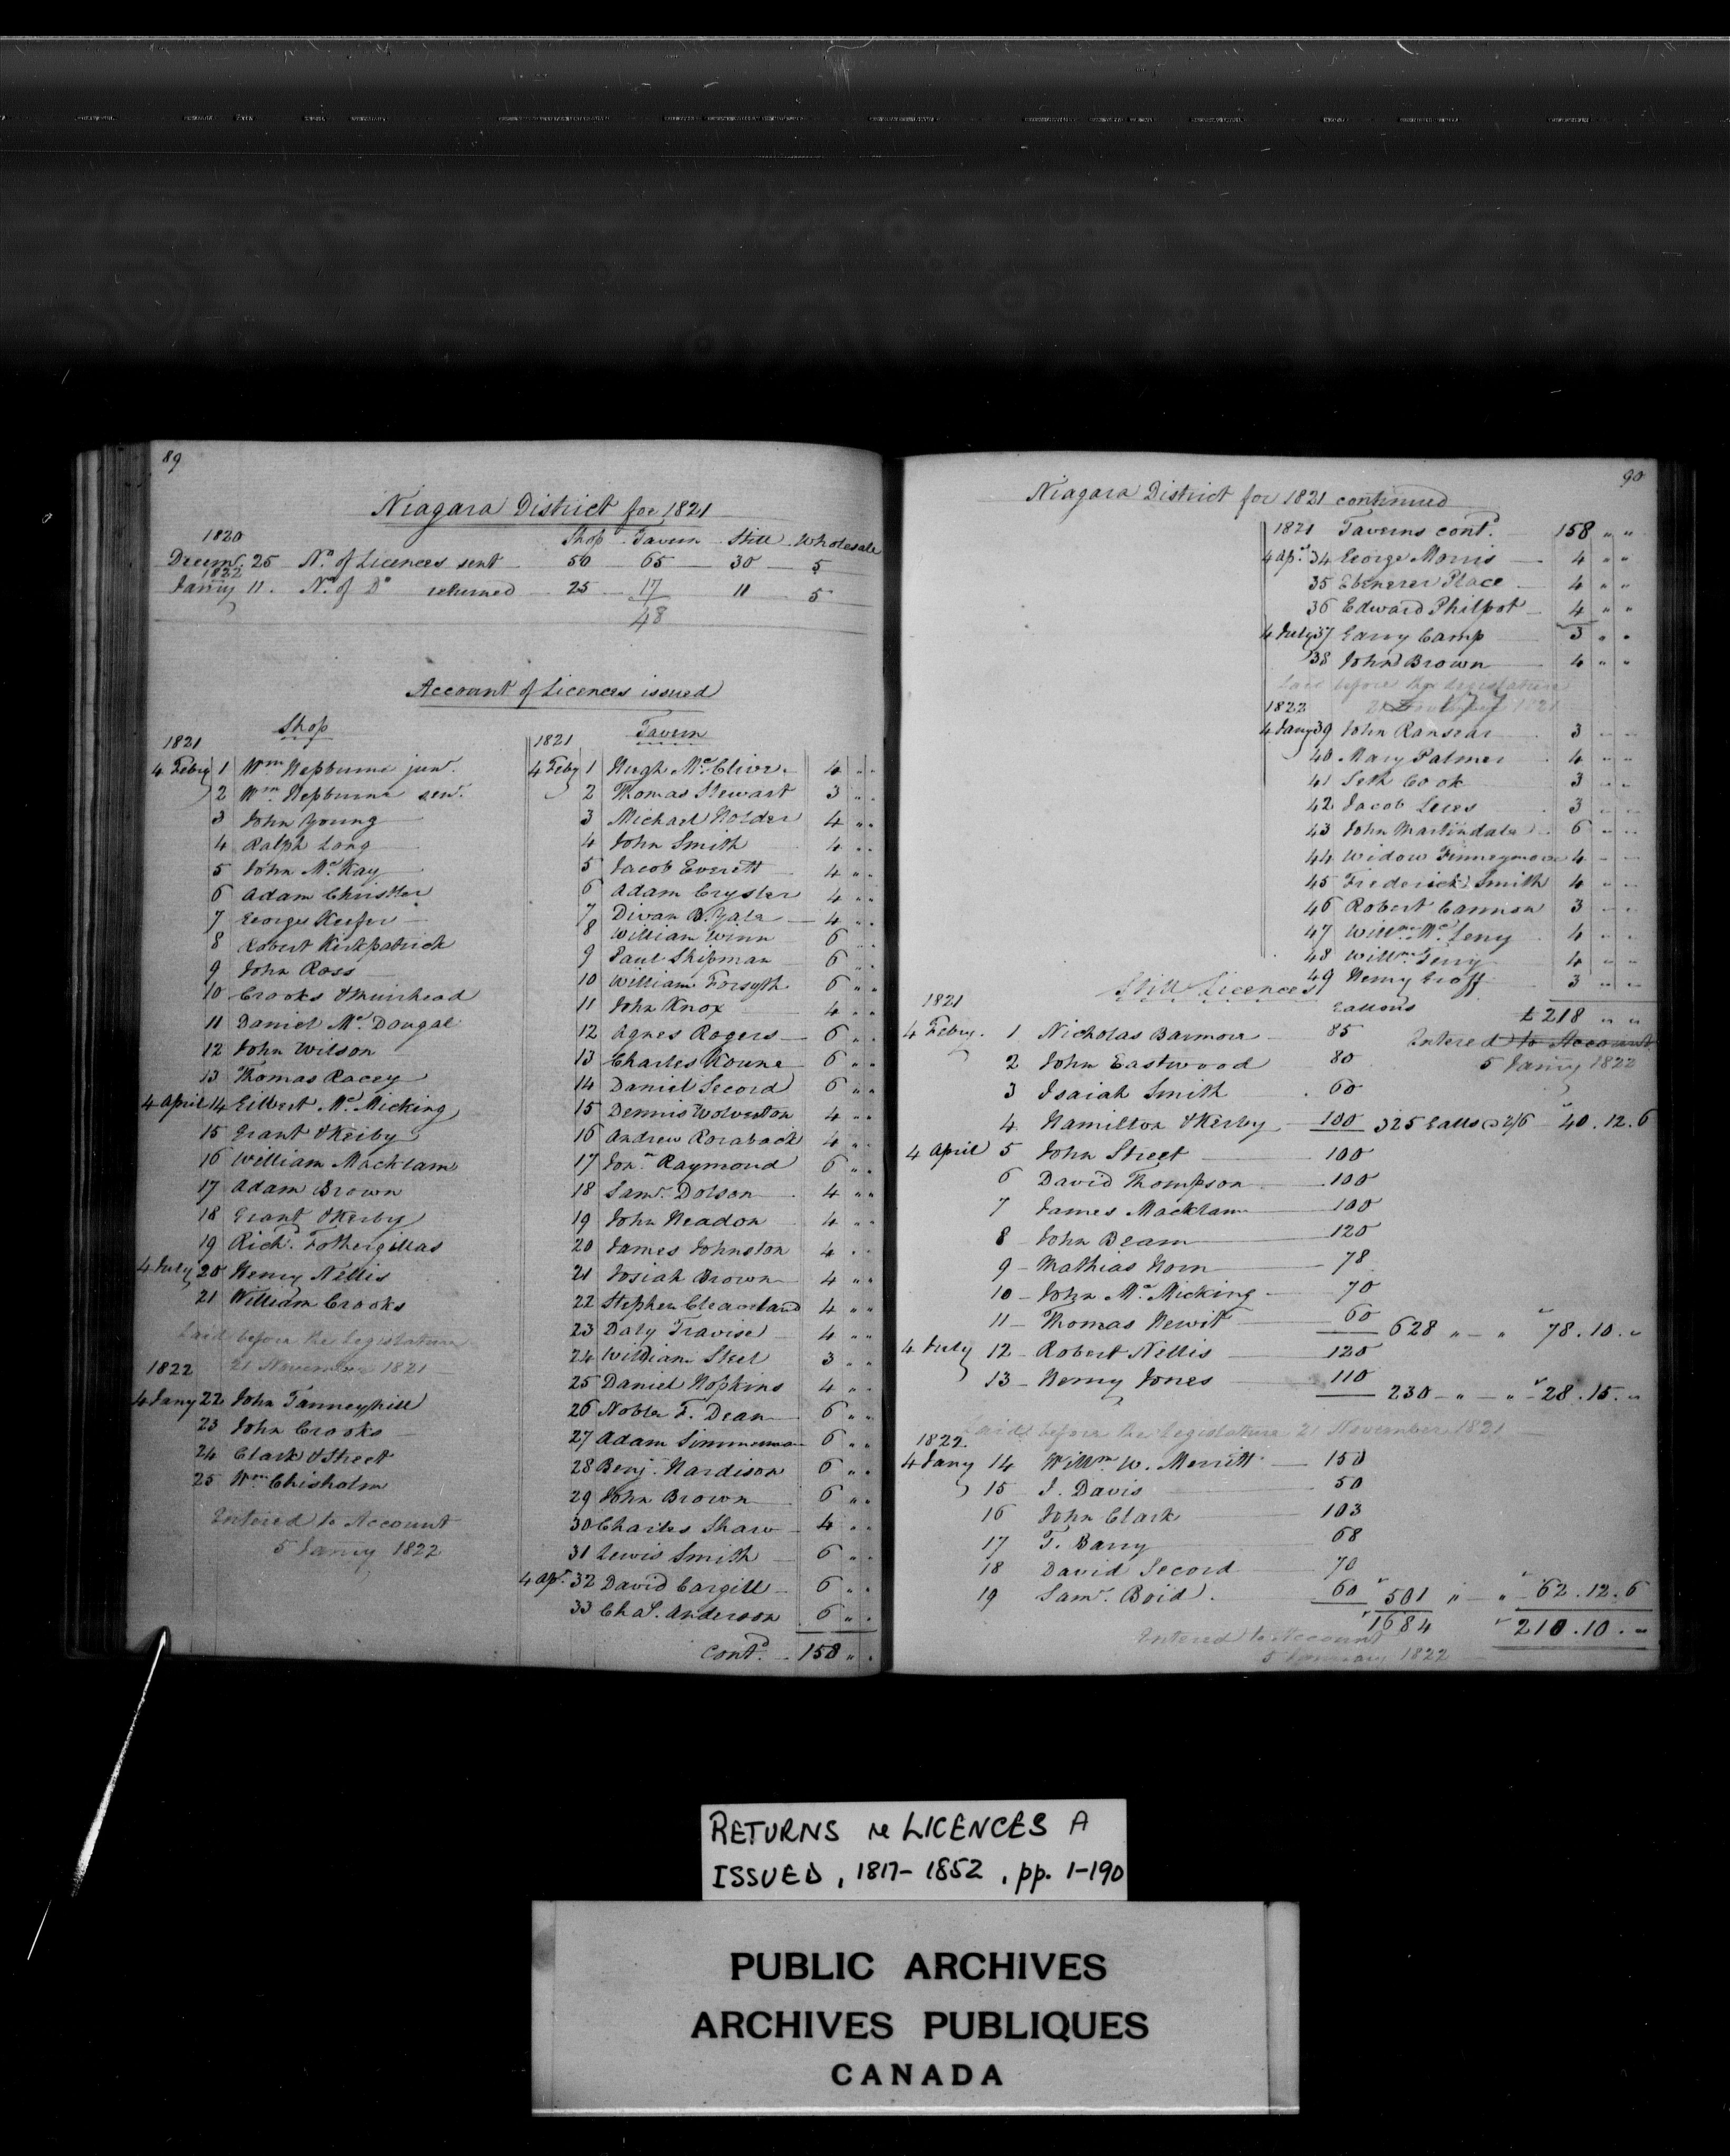 89
Niagara District for 1821
1820 Shop Tavern Still Wholesale
Decemr. 25 No. of Licences sent 50 65 30 5
1822
Janry 11. No. of Do returned 25 17 11 5
48
Account of Licences issued
Shop
1821
4 Febry 1 Wm. Hepburne junr.
2 Wm. Hepburne senr.
3 John Young
4 Ralph Long
5 John McKay
6 Adam Chrisler
7 George Keefer
8 Robert Kirkpatrick
9 John Ross
10 Crooks & Muirhead
11 Daniel McDougal
12 John Wilson
13 Thomas Racey
4 April 14 Gilbert McMicking
15 Grant & Kerby
16 William Macklam
17 Adam Brown
18 Grant & Kerby
19 Richd. Fothergillas
4 July 20 Henry Nellis
21 William Crooks
Laid before the Legislature
21 November 1821
1822
4 Jany 22 John Tanneyhill
23 John Crooks
24 Clark & Street
25 Wm. Chisholm
Entered to Account
5 Janry 1822
Tavern
1821
4 Feby 1 Hugh McClive 4 " "
2 Thomas Stewart 3 " "
3 Michael Holder 4 " "
4 John Smith 4 " "
5 Jacob Everett 4 " "
6 Adam Crysler 4 " "
7 Divan B. Yale 4 " "
8 William Winn 6 " "
9 Paul Shipman 6 " "
10 William Forsyth 6 " "
11 John Knox 4 " "
12 Agnes Rogers 6 " "
13 Charles Koune 6 " "
14 Daniel Secord 6 " "
15 Dennis Wolverton 4 " "
16 Andrew Roraback 4 " "
17 Jonn. Raymond 6 " "
18 Saml. Dolson 4 " "
19 John Neadon 4 " "
20 James Johnston 4 " "
21 Josiah Brown 4 " "
22 Stephen Cleaveland 4 " "
23 Daly Travise 4 " "
24 William Steel 3 " "
25 Daniel Hopkins 4 " "
26 Noble F. Dean 6 " "
27 Adam Simmerman 6 " "
28 Benj. Hardison 6 " "
29 John Brown 6 " "
30 Charles Shaw 4 " "
31 Lewis Smith 6 " "
4 Apl. 32 David Cargill 6 " "
33 Chas. Anderson 6 " "
Contd. 158 " "
90
Niagara District for 1821 continued
1821 Taverns contd. 158 " "
4 Apl. 34 George Morris 4 " "
35 Ebenezer Place 4 " "
36 Edward Philpot 4 " "
4 July 37 Garry Camp 3 " "
38 John Brown 4 " "
Laid before the Legislature
21 November 1821
1822
4 Jany 39 John Ransear 3 " "
40 Mary Palmer 4 " "
41 Seth Cook 3 " "
42 Jacob 3 " "
43 John Martindale 6 " "
44 Widow Finneymore 4 " "
45 Frederick Smith 4 " "
46 Robert Cannon 3 " "
47 Willm. Mc 4 " "
48 Willm. Terry 4 " "
49 Henry Groff 3 " "
£ 218 " "
Entered to Account
5 Janry 1822
Still Licences
1821 Gallons
4 Febry. 1 Nicholas Barmore 85
2 John Eastwood 80
3 Isaiah Smith 60
4 Hamilton & Kerby 100 325 Galls @ 2/6 40.12.6
4 April 5 John Street 100
6 David Thompson 100
7 James Macklam 100
8 John Beam 120
9 Mathias Horn 78
10 John McMicking 70
11 Thomas Hewit 60 628 " " 78.10."
4 July 12 Robert Nellis 120
13 Henry Jones 110 230 " " 28.15."
Laid before the Legislature 21 November 1821
1822
4 Jany 14 Willm. W. Merritt 150
15 J. Davis 50
16 John Clark 103
17 T. Barry 68
18 David Secord 70
19 Saml. Boid. 60 501 " " 62.12.6
1684 210.10."
Entered to Account
5 January 1822
RETURNS re LICENCES A
ISSUED, 1817-1852, pp. 1-190
PUBLIC ARCHIVES
ARCHIVES PUBLIQUES
CANADA